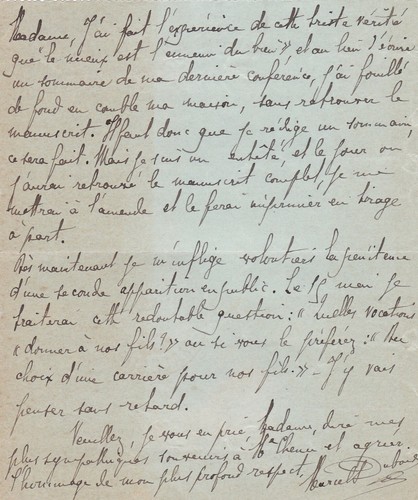 Madame, J'ai fait l'expérience de cette triste vérité
que "le mieux est l'ennemi du bien" » et au lieu d'écrire
un sommaire de ma dernière conférence, j'ai fouillé
de fond en comble ma maison, sans retrouver le
manuscrit. Il faut donc que je rédige un sommaire,
ce sera fait. Mais je suis un entêté, et le jour où
j'aurai retrouvé le manuscrit complet, je me
mettrai à l'amende et le ferai imprimer en tirage
à part.
Dès maintenant je m'inflige volontiers la pénitence
d'une seconde apparition en public. Le 19 mai je
traiterai cette redoutable question : « Quelles vocations
« donner à nos fils ? » ou si vous le préférez : « Du
choix d'une carrière pour nos fils. » – J'y vais
penser sans retard.
Veuillez, je vous en prie, Madame, dire mes
plus sympathiques souvenirs à Mr Chenu et agréer
l'hommage de mon plus profond respect, Marcel Dubois